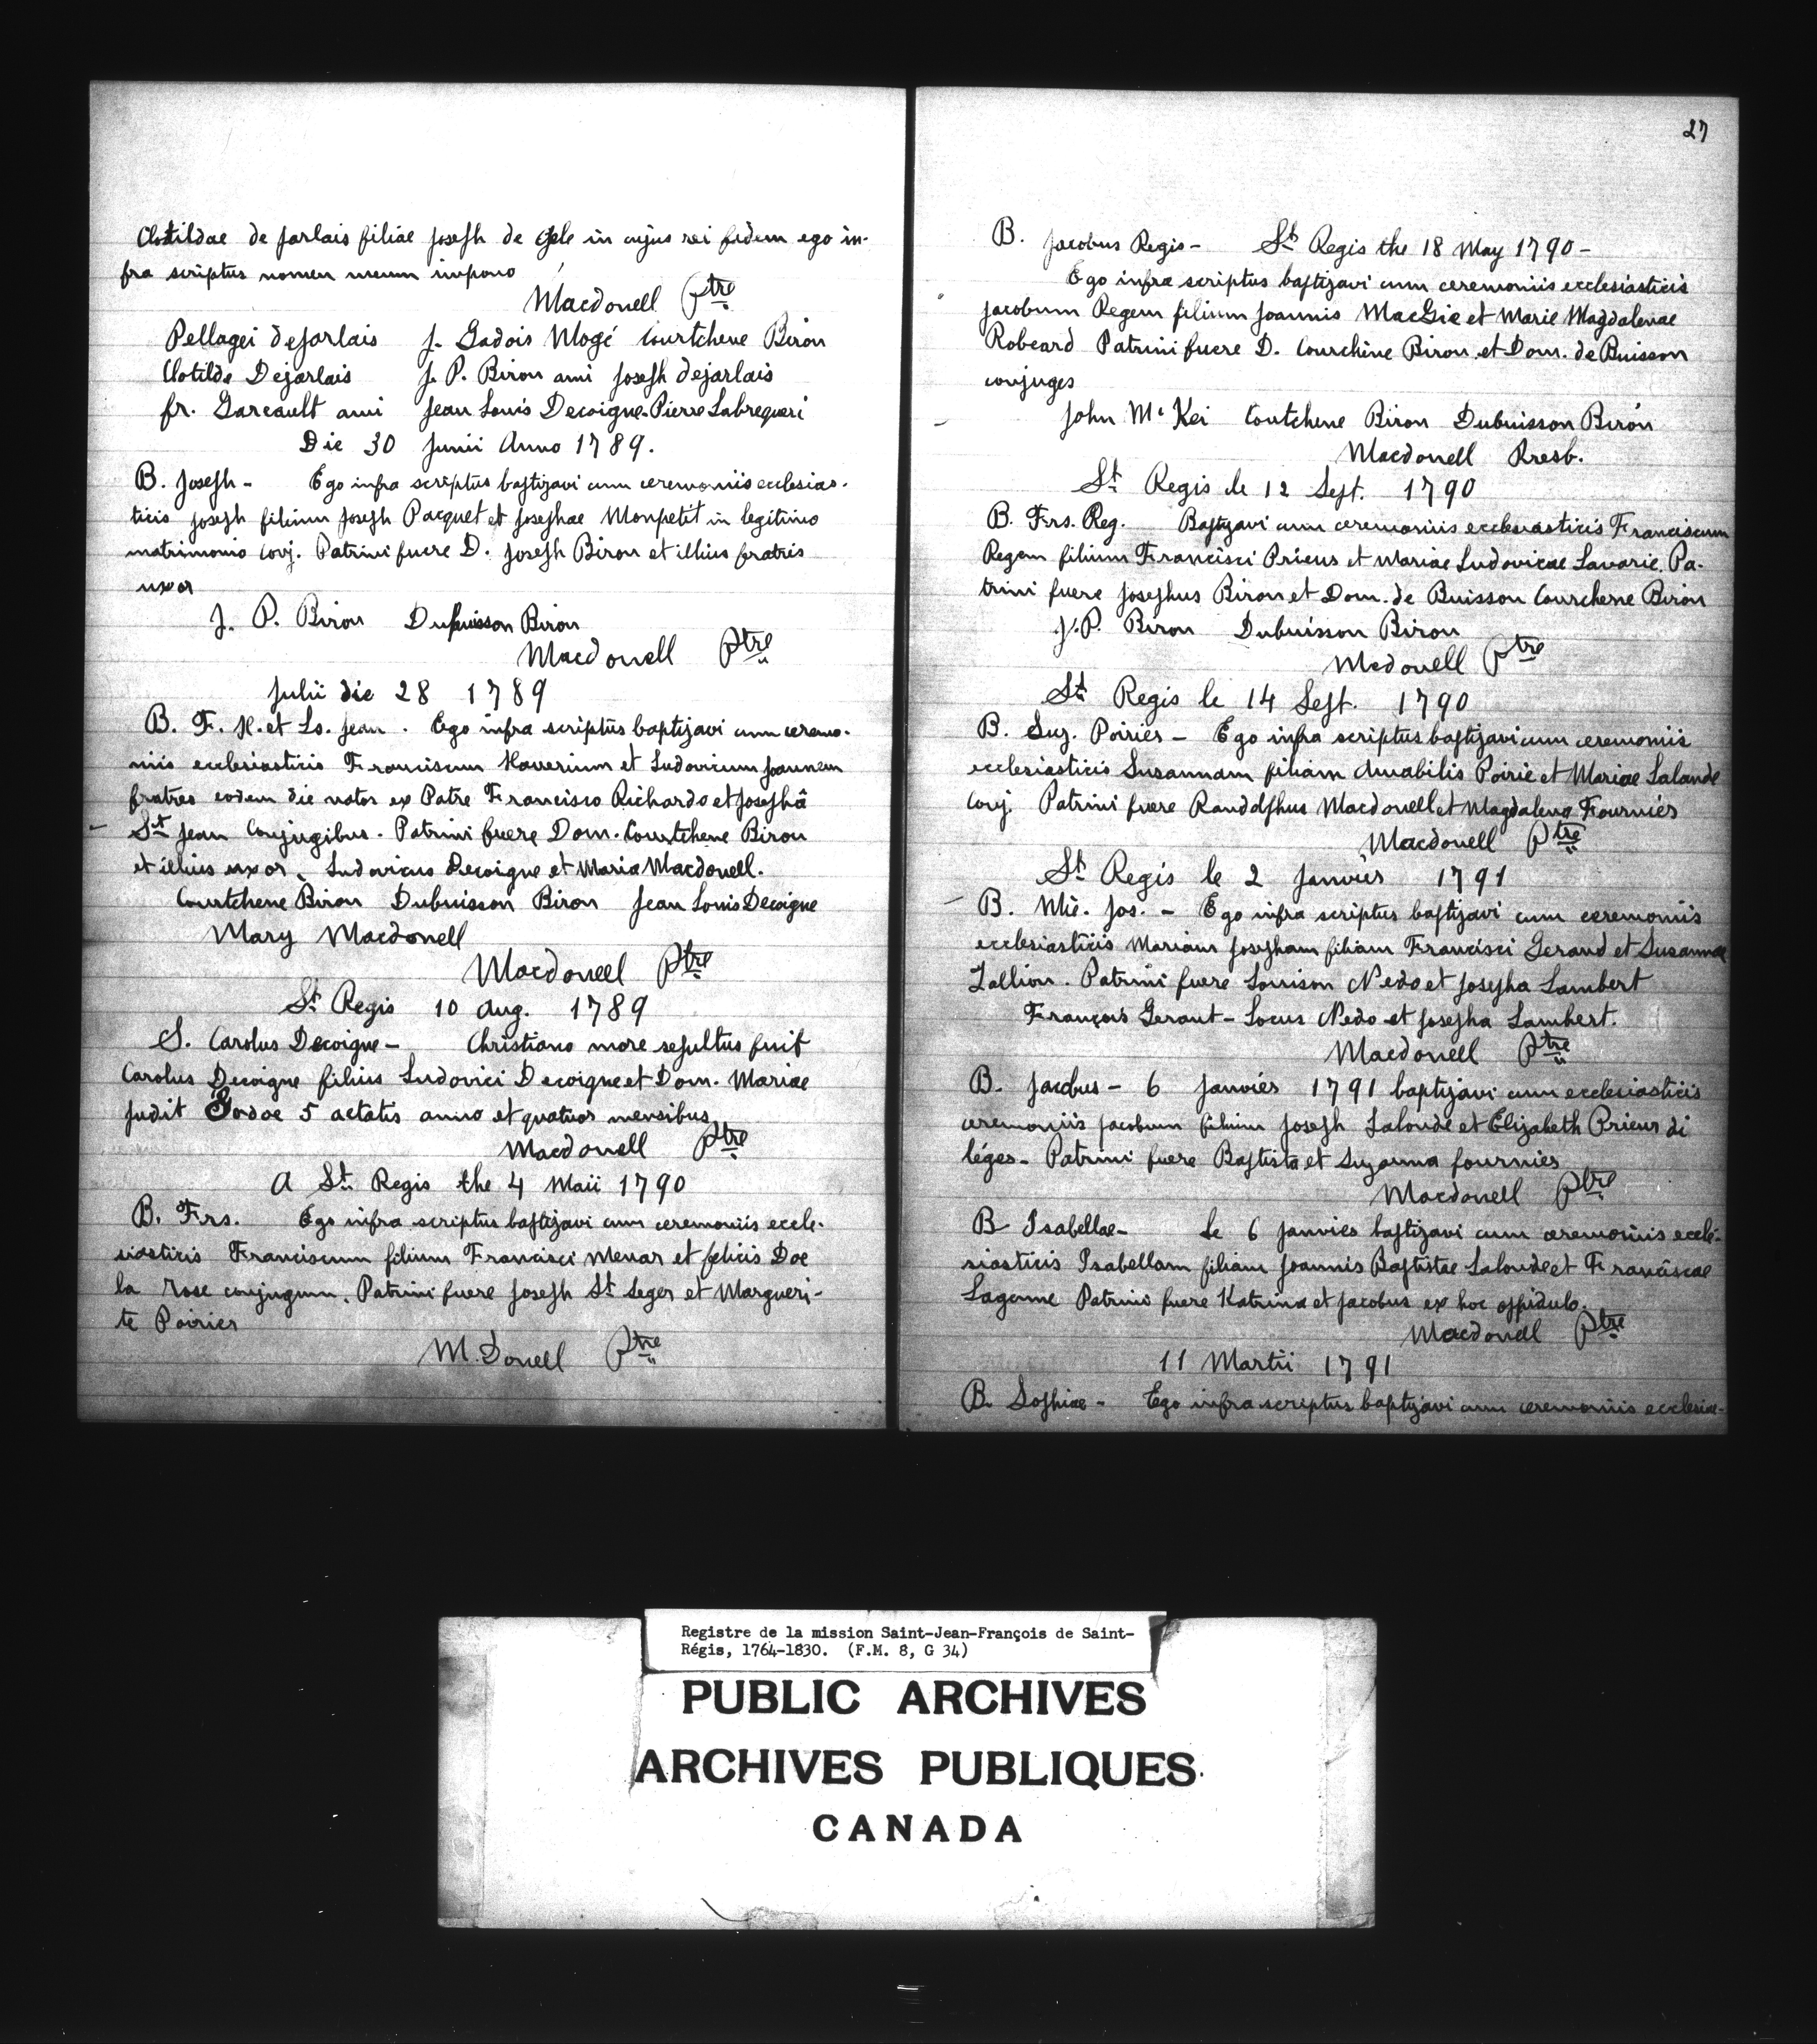 Clotildae de jarlais filiae joseph de Gele in cujus rei fidem ego in-
fra scriptus nomen meum impono
Macdonell Ptre
Pellagei dejarlais J. Gadois Mogé Courtchene Biron
Clotilde Dejarlais J. P. Biron ami joseph dejarlais
fr. Gareault ami Jean Louis Decoigne Pierre Labrequeri
Die 30 Junii Anno 1789.
B. Joseph - Ego infra scriptus baptizavi cum ceremoniis ecclesias-
ticis joseph filium joseph Pacquet et josephae Monpetit in legitimo
matrimonio conj. Patrini fuere D. joseph Biron et illius fratris
uxor
J. P. Biron Dubuisson Biron
Macdonell Ptre
Julii die 28 1789
B. F. X. et Ls. Jean . Ego infra scriptus baptizavi cum ceremo-
niis ecclesiasticis Franciscum Xaverium et Ludovicum Joannem
fratres eodem die natos ex Patre Francisco Richardo et josephâ
St Jean Conjugibus. Patrini fuere Dom. Courtchene Biron
et illius uxor, Ludovicus Decoigne et Maria Macdonell.
Courtchene Biron Dubuisson Biron Jean Louis Decoigne
Mary Macdonell
Macdonell Ptre
St Regis 10 Aug. 1789
S. Carolus Decoigne - Christiano more sepultus fuit
Carolus Decoigne filius Ludovici Decoigne et Dom. Mariae
Judit Godoe 5 aetatis anno et quatuor mensibus
Macdonell Ptre
A St Regis the 4 Maii 1790
B. Frs. Ego infra scriptus baptizavi cum ceremoniis eccle-
siasticis Franciscum filium Francisci Menar et felicis Doe
la rose conjugum. Patrini fuere joseph St Seger et Margueri-
te Poirier
M. Donell Ptre
27
B. Jacobus Regis - St Regis the 18 May 1790 -
Ego infra scriptus baptizavi cum ceremoniis ecclesiasticis
Jacobum Regem filium Joannis MacGie et Marie Magdalenae
Robeard Patrini fuere D. Courchène Biron et Dom. de Buisson
conjuges
John Mc Kei Courtchene Biron Dubuisson Biron
Macdonell Presb.
St Regis le 12 Sept. 1790
B. Frs. Reg. Baptizavi cum ceremoniis ecclesiasticis Franciscum
Regem filium Francisci Prieur et Mariae Ludovicae Lavarie. Pa-
trini fuere Josephus Biron et Dom. de Buisson Courchene Biron
J. P. Biron Dubuisson Biron
Mcdonell Ptre
St Regis le 14 Sept. 1790
B. Suz. Poirier - Ego infra scriptus baptizavi cum ceremoniis
ecclesiasticis Susannam filiam Amabilis Poirie et Mariae Lalande
conj. Patrini fuere Randolphus Macdonell et Magdalena Fournier
Macdonell Ptre
St Regis le 2 Janvier 1791
B. Mie. Jos. - Ego infra scriptus baptizavi cum ceremoniis
ecclesiasticis Mariam Josepham filiam Francisci Geraud et Susannae
Tallion. Patrini fuere Louison Nedo et Josepha Lambert
François Geraut - Locus Nedo et Josepha Lambert.
Macdonell Ptre
B. Jacobus - 6 Janvier 1791 baptizavi cum ecclesiasticis
ceremoniis Jacobum filium Joseph Lalonde et Elizabeth Prieur di
léger - Patrini fuere Baptista et Suzanna fournier
Macdonell Ptre
B Isabellae - Le 6 Janvier baptizavi cum ceremoniis eccle-
siasticis Isabellam filiam Joannis Baptistae Lalonde et Franciscae
Lagarne Patrini fuere Katrina et Jacobus ex hoc oppidulo.
Macdonell Ptre
11 Martii 1791
B. Sophiae - Ego infra scriptus baptizavi cum ceremoniis ecclesias-
Registre de la mission Saint-Jean-François de Saint-
Régis, 1764-1830. (F.M. 8, G 34)
PUBLIC ARCHIVES
ARCHIVES PUBLIQUES
CANADA